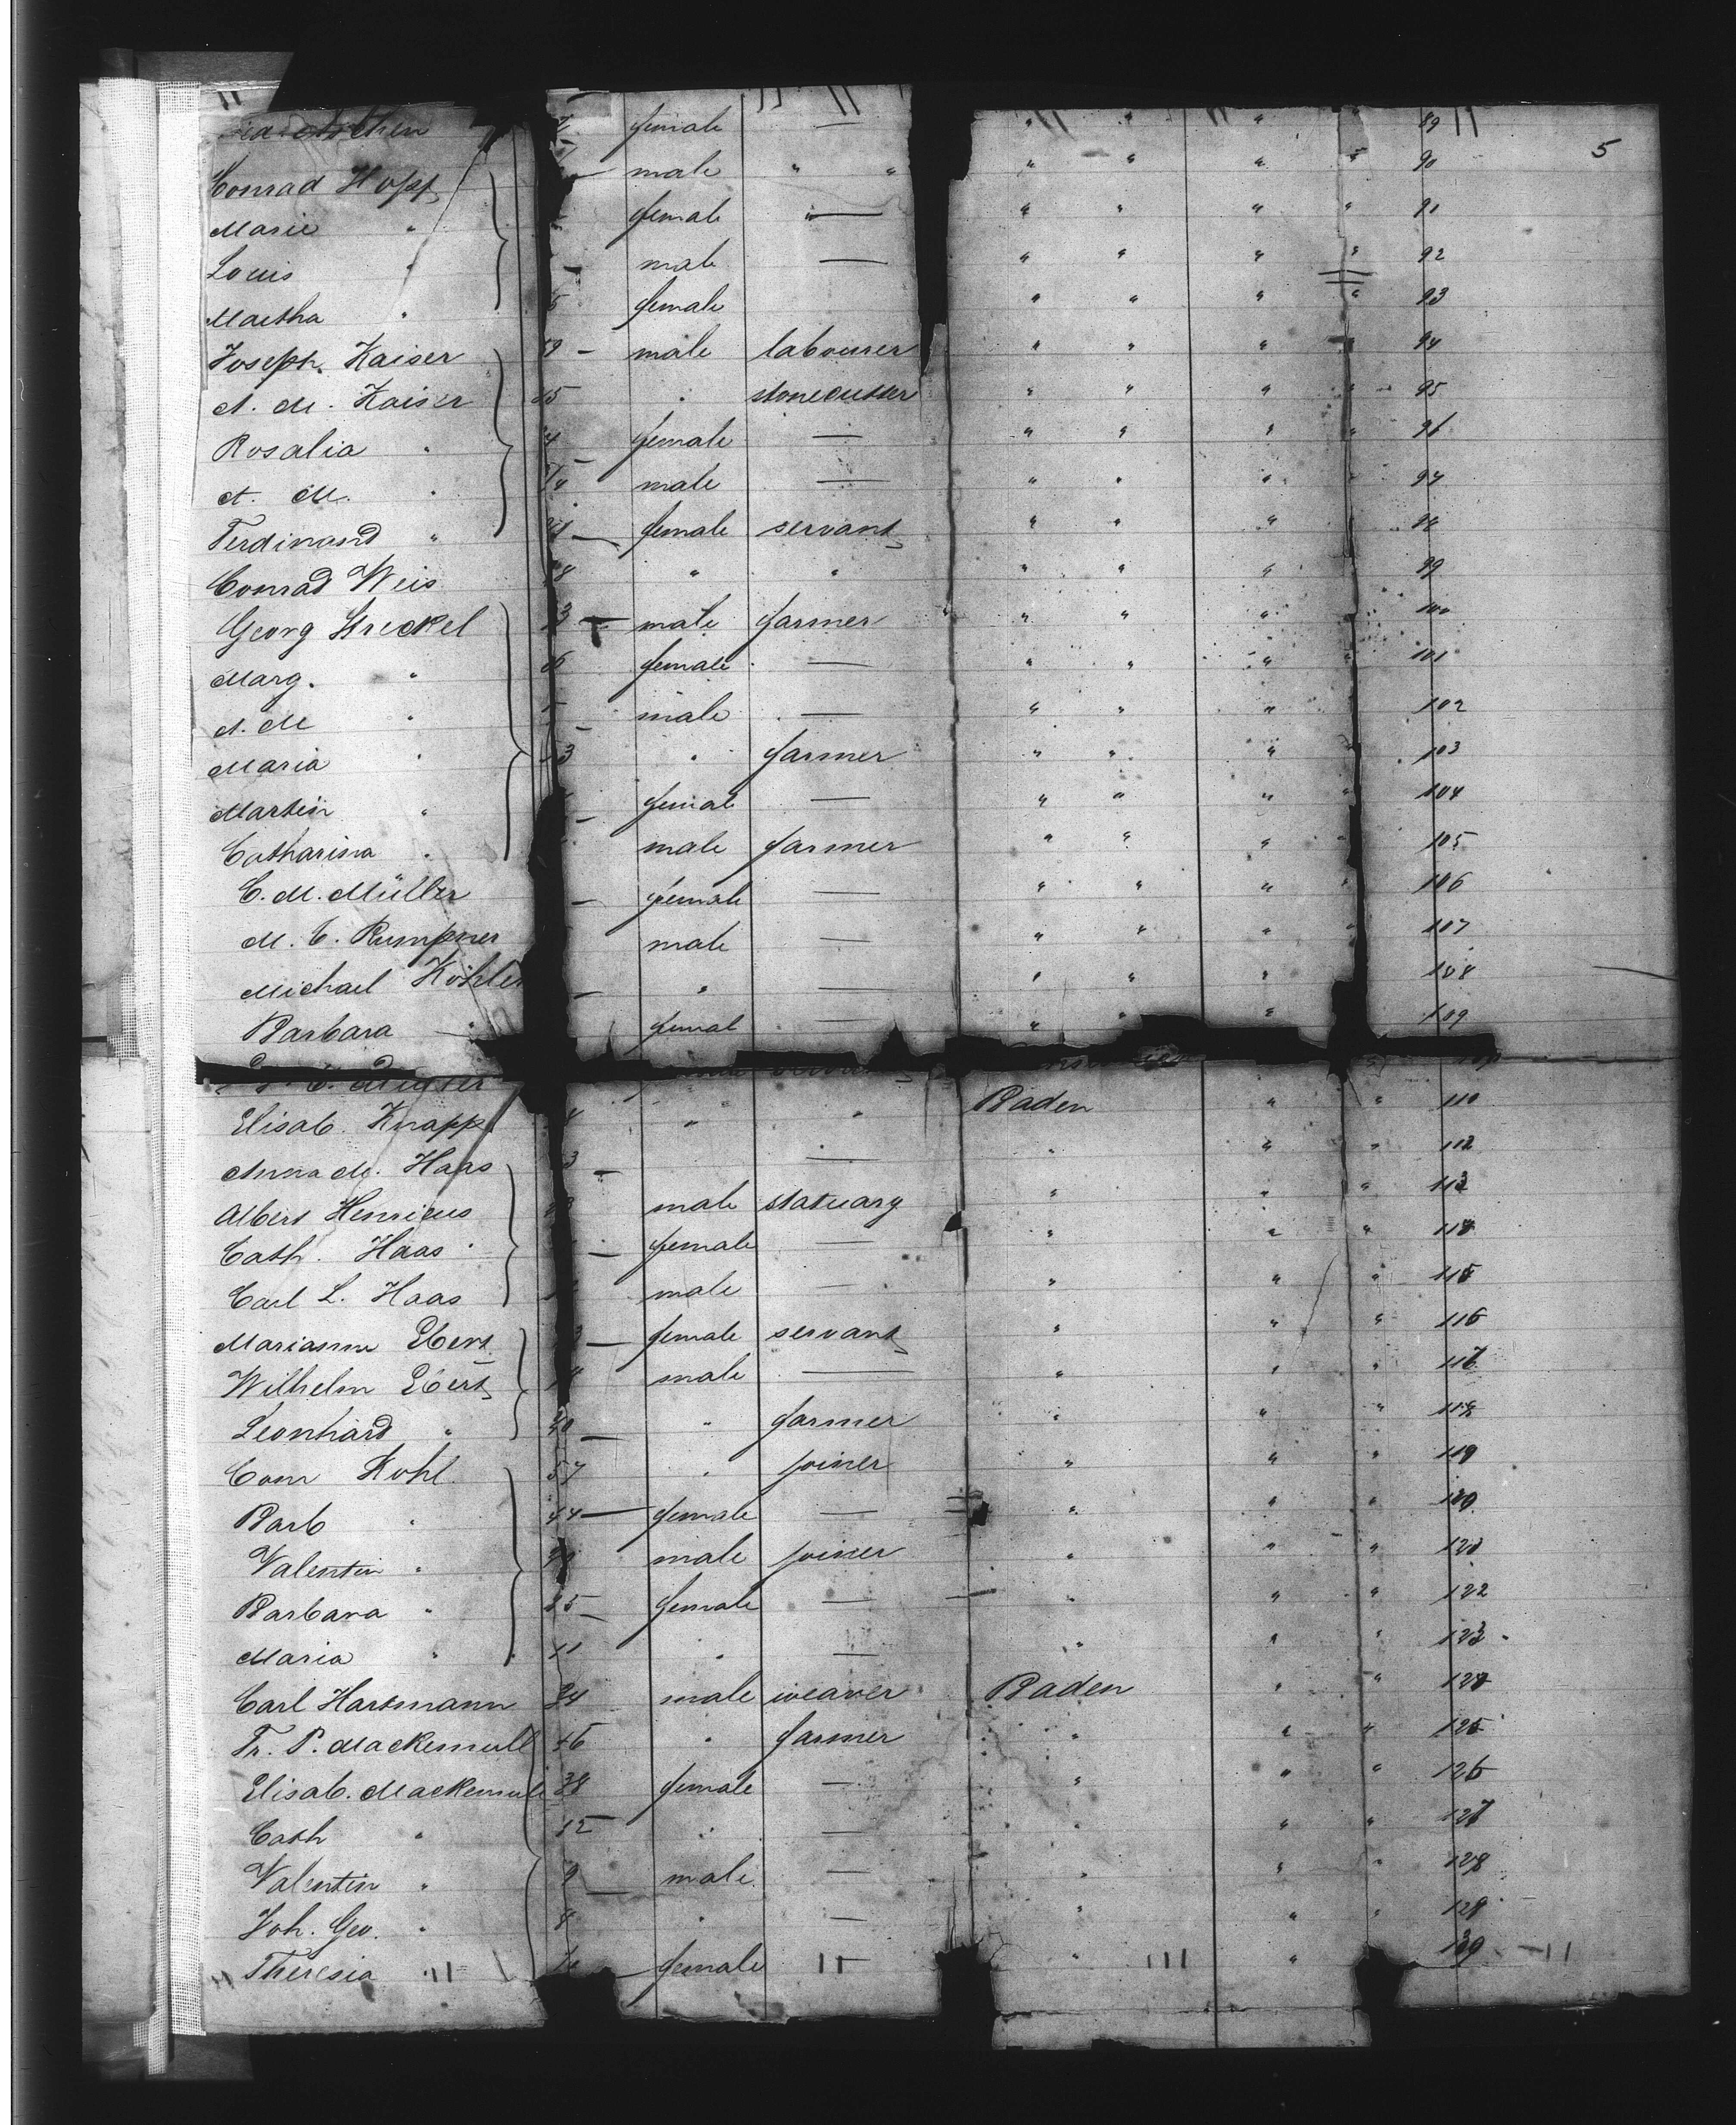 female — " " " 89
5
Conrad Hopp male " " " " " " 90
Marie " female " — " " " " 91
Louis " male — " " " " 92
Martha " 5 female " " " " 93
Joseph Kaiser 9 — male labourer " " " " 94
A. M. Kaiser 35 " stonecutter " " " " 95
Rosalia " 4 female — " " " " 96
A. M. " male — " " " " 97
Ferdinand " — female servant " " " " 98
Conrad Weis 8 " " " " " 99
Georg Streckel 3 — male farmer " " " 100
Marg. " 6 female — " " " " 101
A. M " male — " " " 102
Maria " 3 " farmer " " " 103
Martin " female — " " " " 104
Catharina " male farmer " " " 105
C. M. Müller — female — " " " " 106
M. C. Rumpner male — " " " " 107
Michael Köhler — " — " " " 108
Barbara " femal — " " " 109
Elisab. Knapp " " Baden " " 110
Anna M. Haas 3 — — " " " 112
Albert Henricus male statuary " " " 113
Cath. Haas — female — " " " 114
Carl L. Haas male — " " " 115
Marianne Ebert — female servant " " " 116
Wilhelm Ebert male — " " " 117
Leonhard " — " farmer " " " 118
Conr Kohl 57 " joiner " " " 119
Barb " 44 — female — " " " 120
Valentin " male joiner " " " 121
Barbara " 25 — female — " " " 122
Maria " 11 " — " " " 123
Carl Hartmann 24 male weaver Baden " " 124
Fr. P. Mackemull 46 " farmer " " " 125
Elisab. Mackemull 38 female — " " " 126
Cath " 12 " — " " " 127
Valentin " 9 — male — " " " 128
Joh. Geo. " 8 " — " " " 129
Theresia " — female " " 130